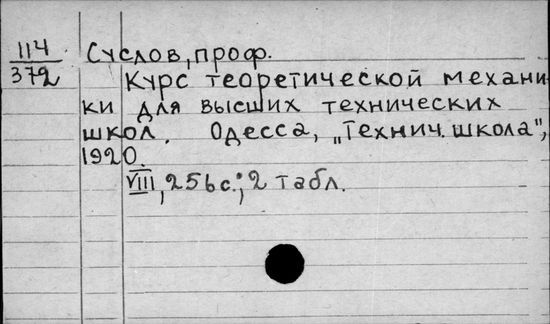 114
372
Суслов, проф.
Курс теоретической механи-
ки для высших технических
школ. Одесса, „Технич. школа",
1920.
VIII, 256 с.; 2 табл.